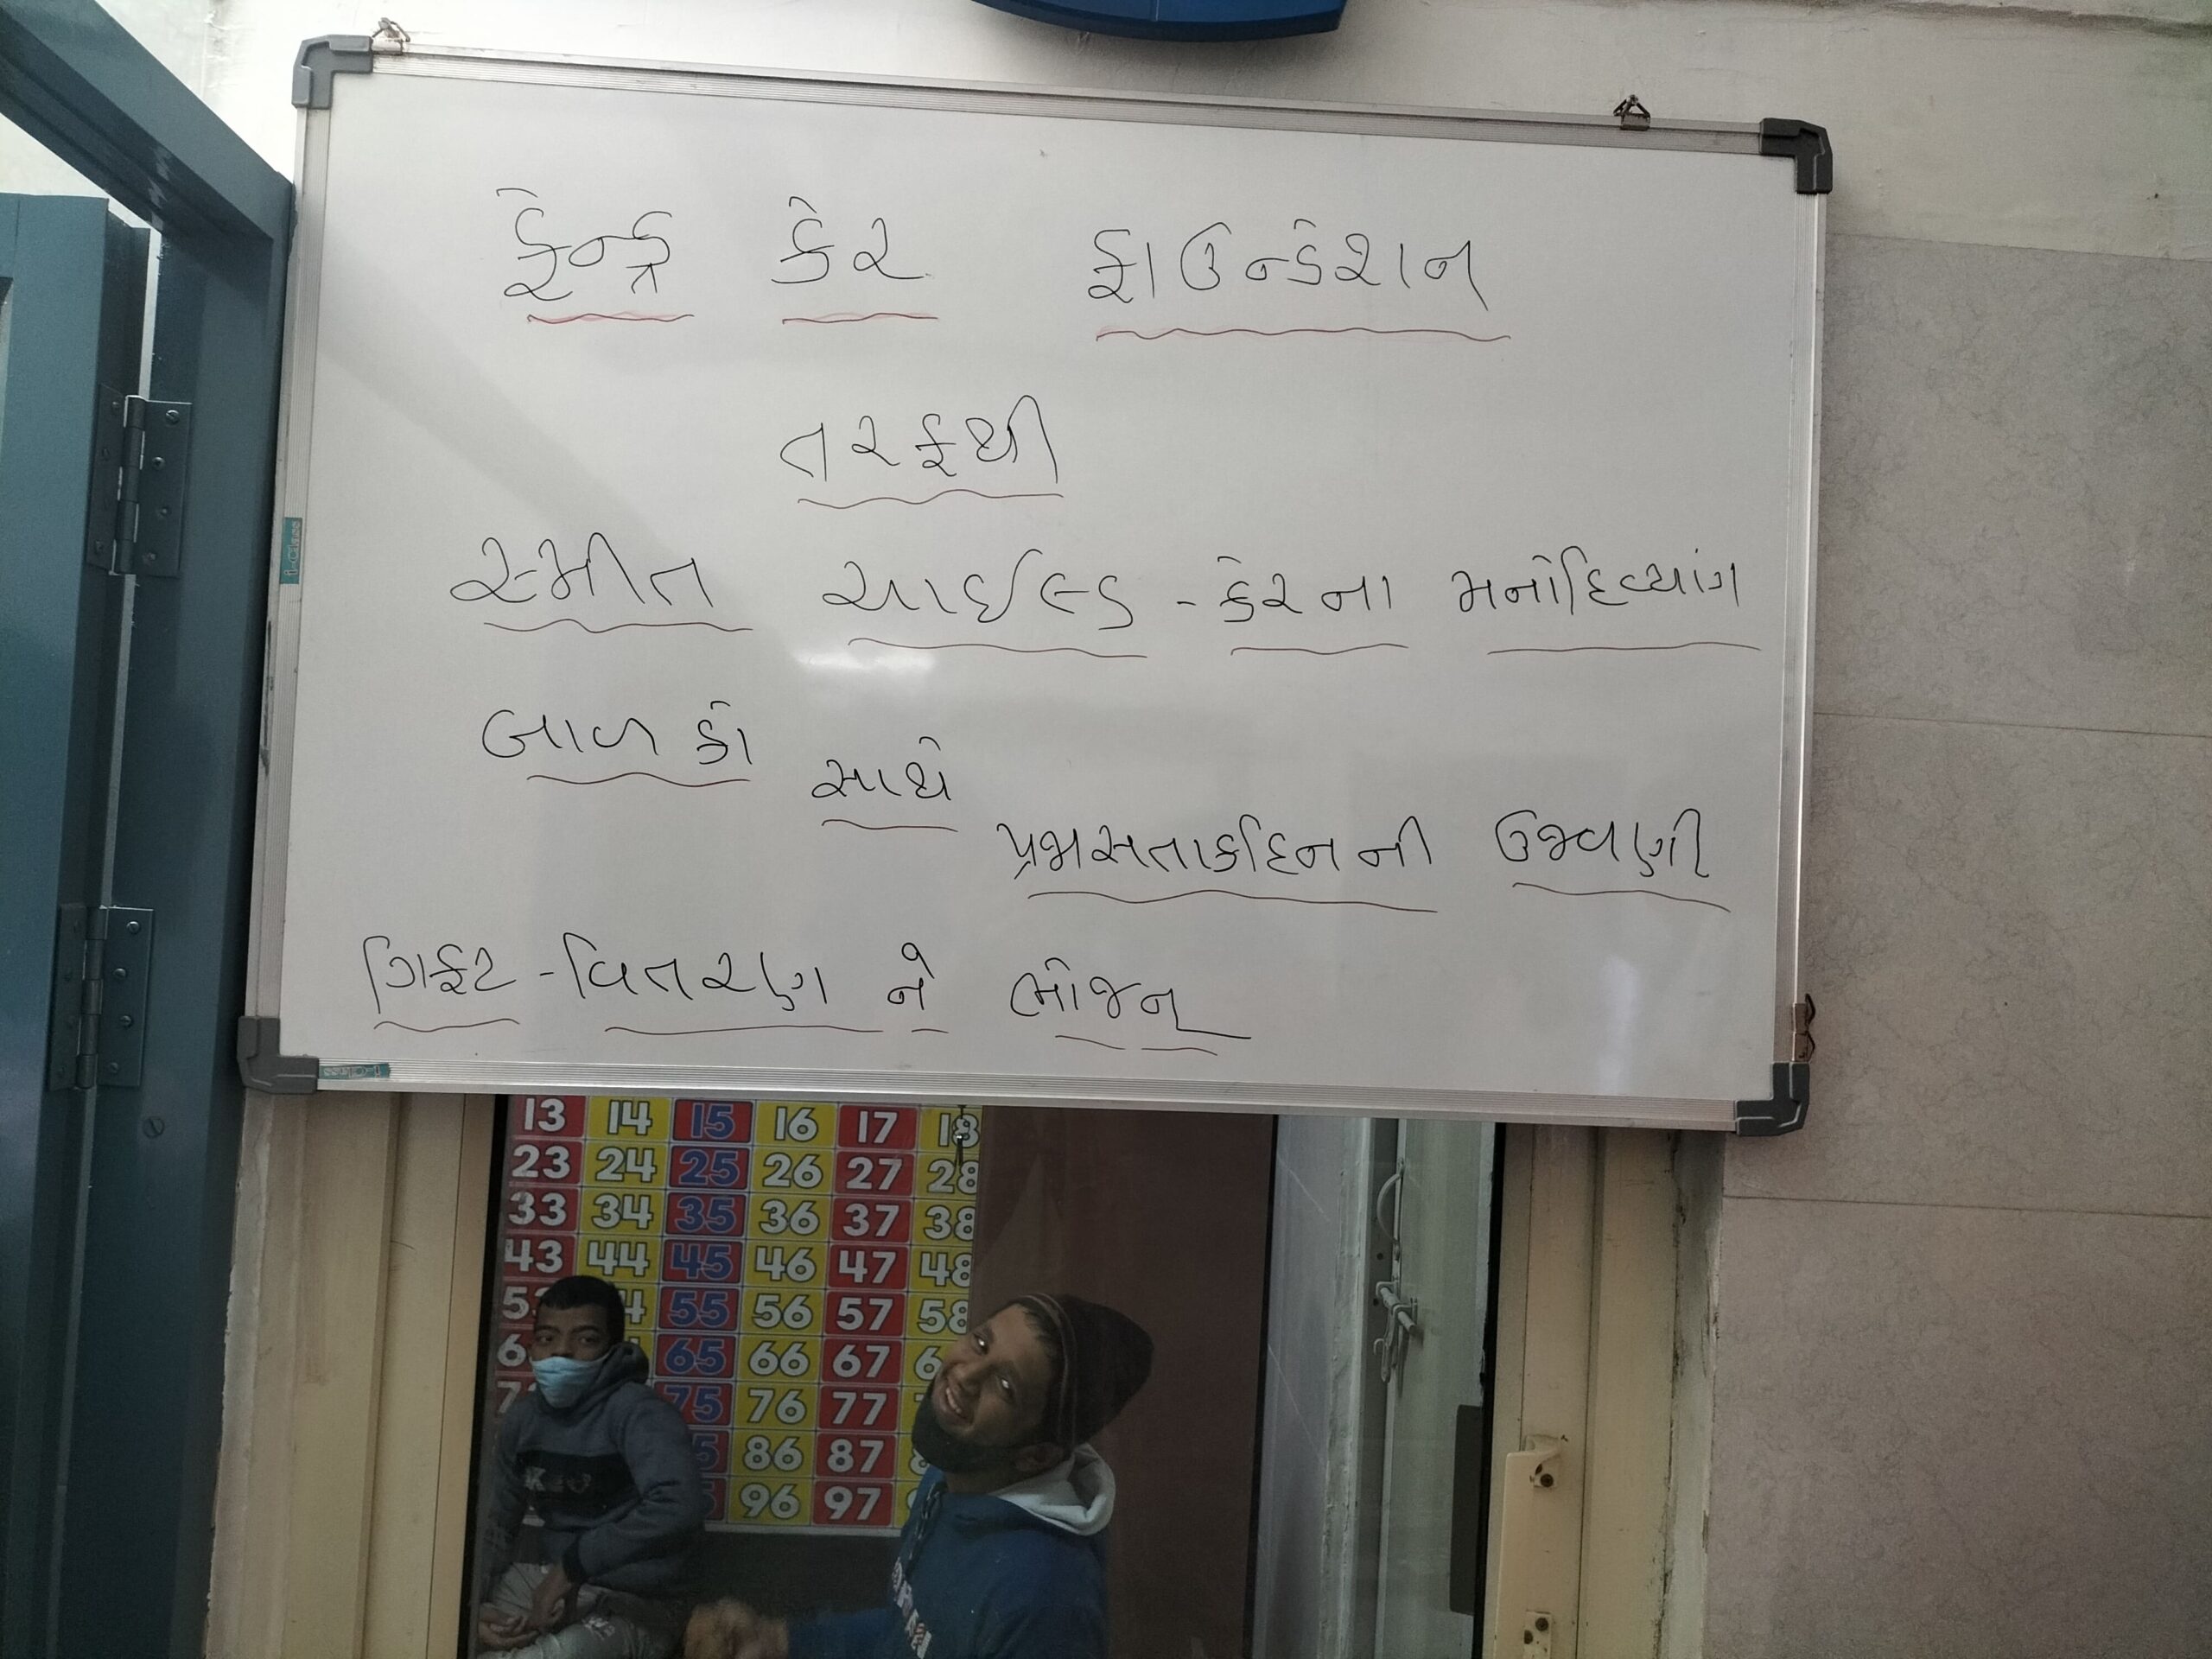 ફ્રેન્ડ્ર કેર ફાઉન્ડેશન
તરફથી
સ્મીત ચાઈલ્ડ - કેરના મનોદિવ્યાંગ
બાળકો સાથે
પ્રજાસતાકદિનની ઉજવણી
ગિફ્ટ - વિતરણ ને ભોજન
i-Class
13 14 15 16 17 18
23 24 25 26 27 28
33 34 35 36 37 38
43 44 45 46 47 48
55 56 57 58
65 66 67
75 76 77
86 87
96 97